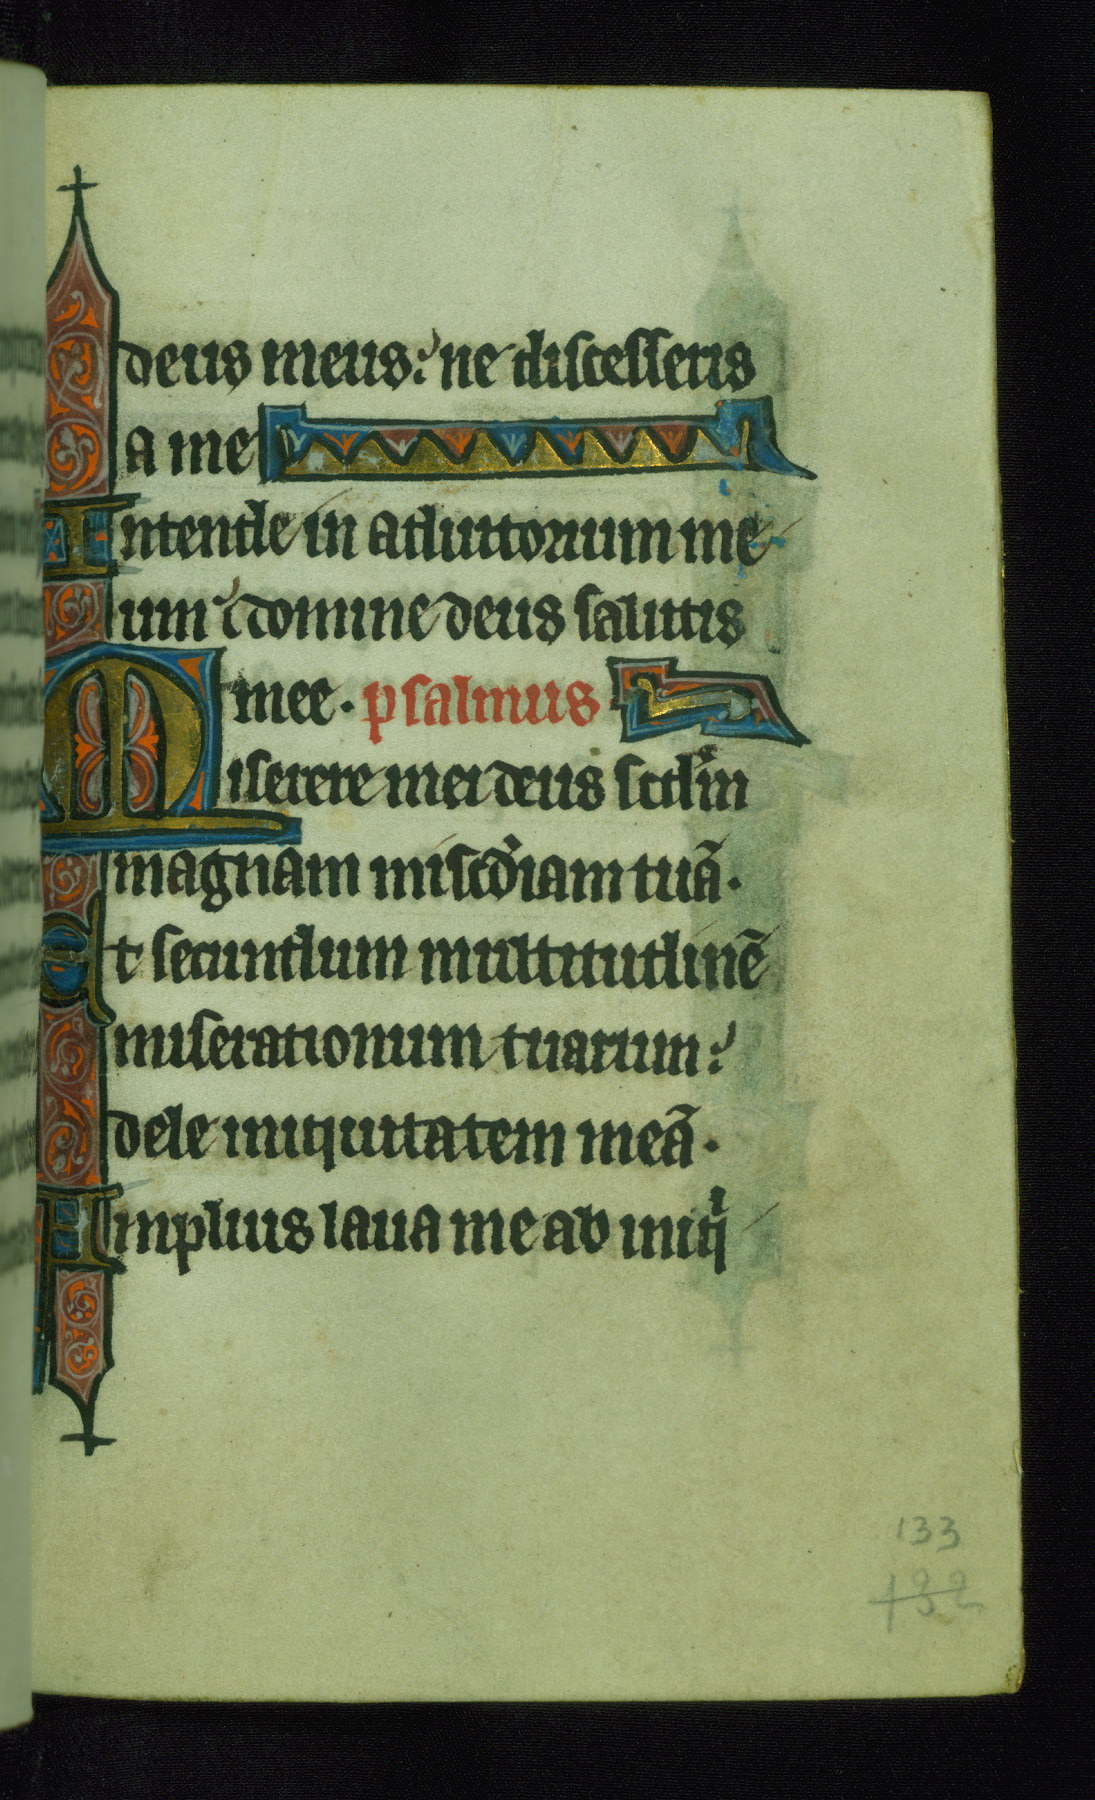 deus meus: ne discesseris
a me
Intende in adiutorium me
um: domine deus salutis
mee. psalmus
Miserere mei deus scd'm
magnam mis'cd'iam tuā.
Et secundum multitudinē
miserationum tuarum:
dele iniquitatem meā.
Amplius laua me ab iniq
133
132